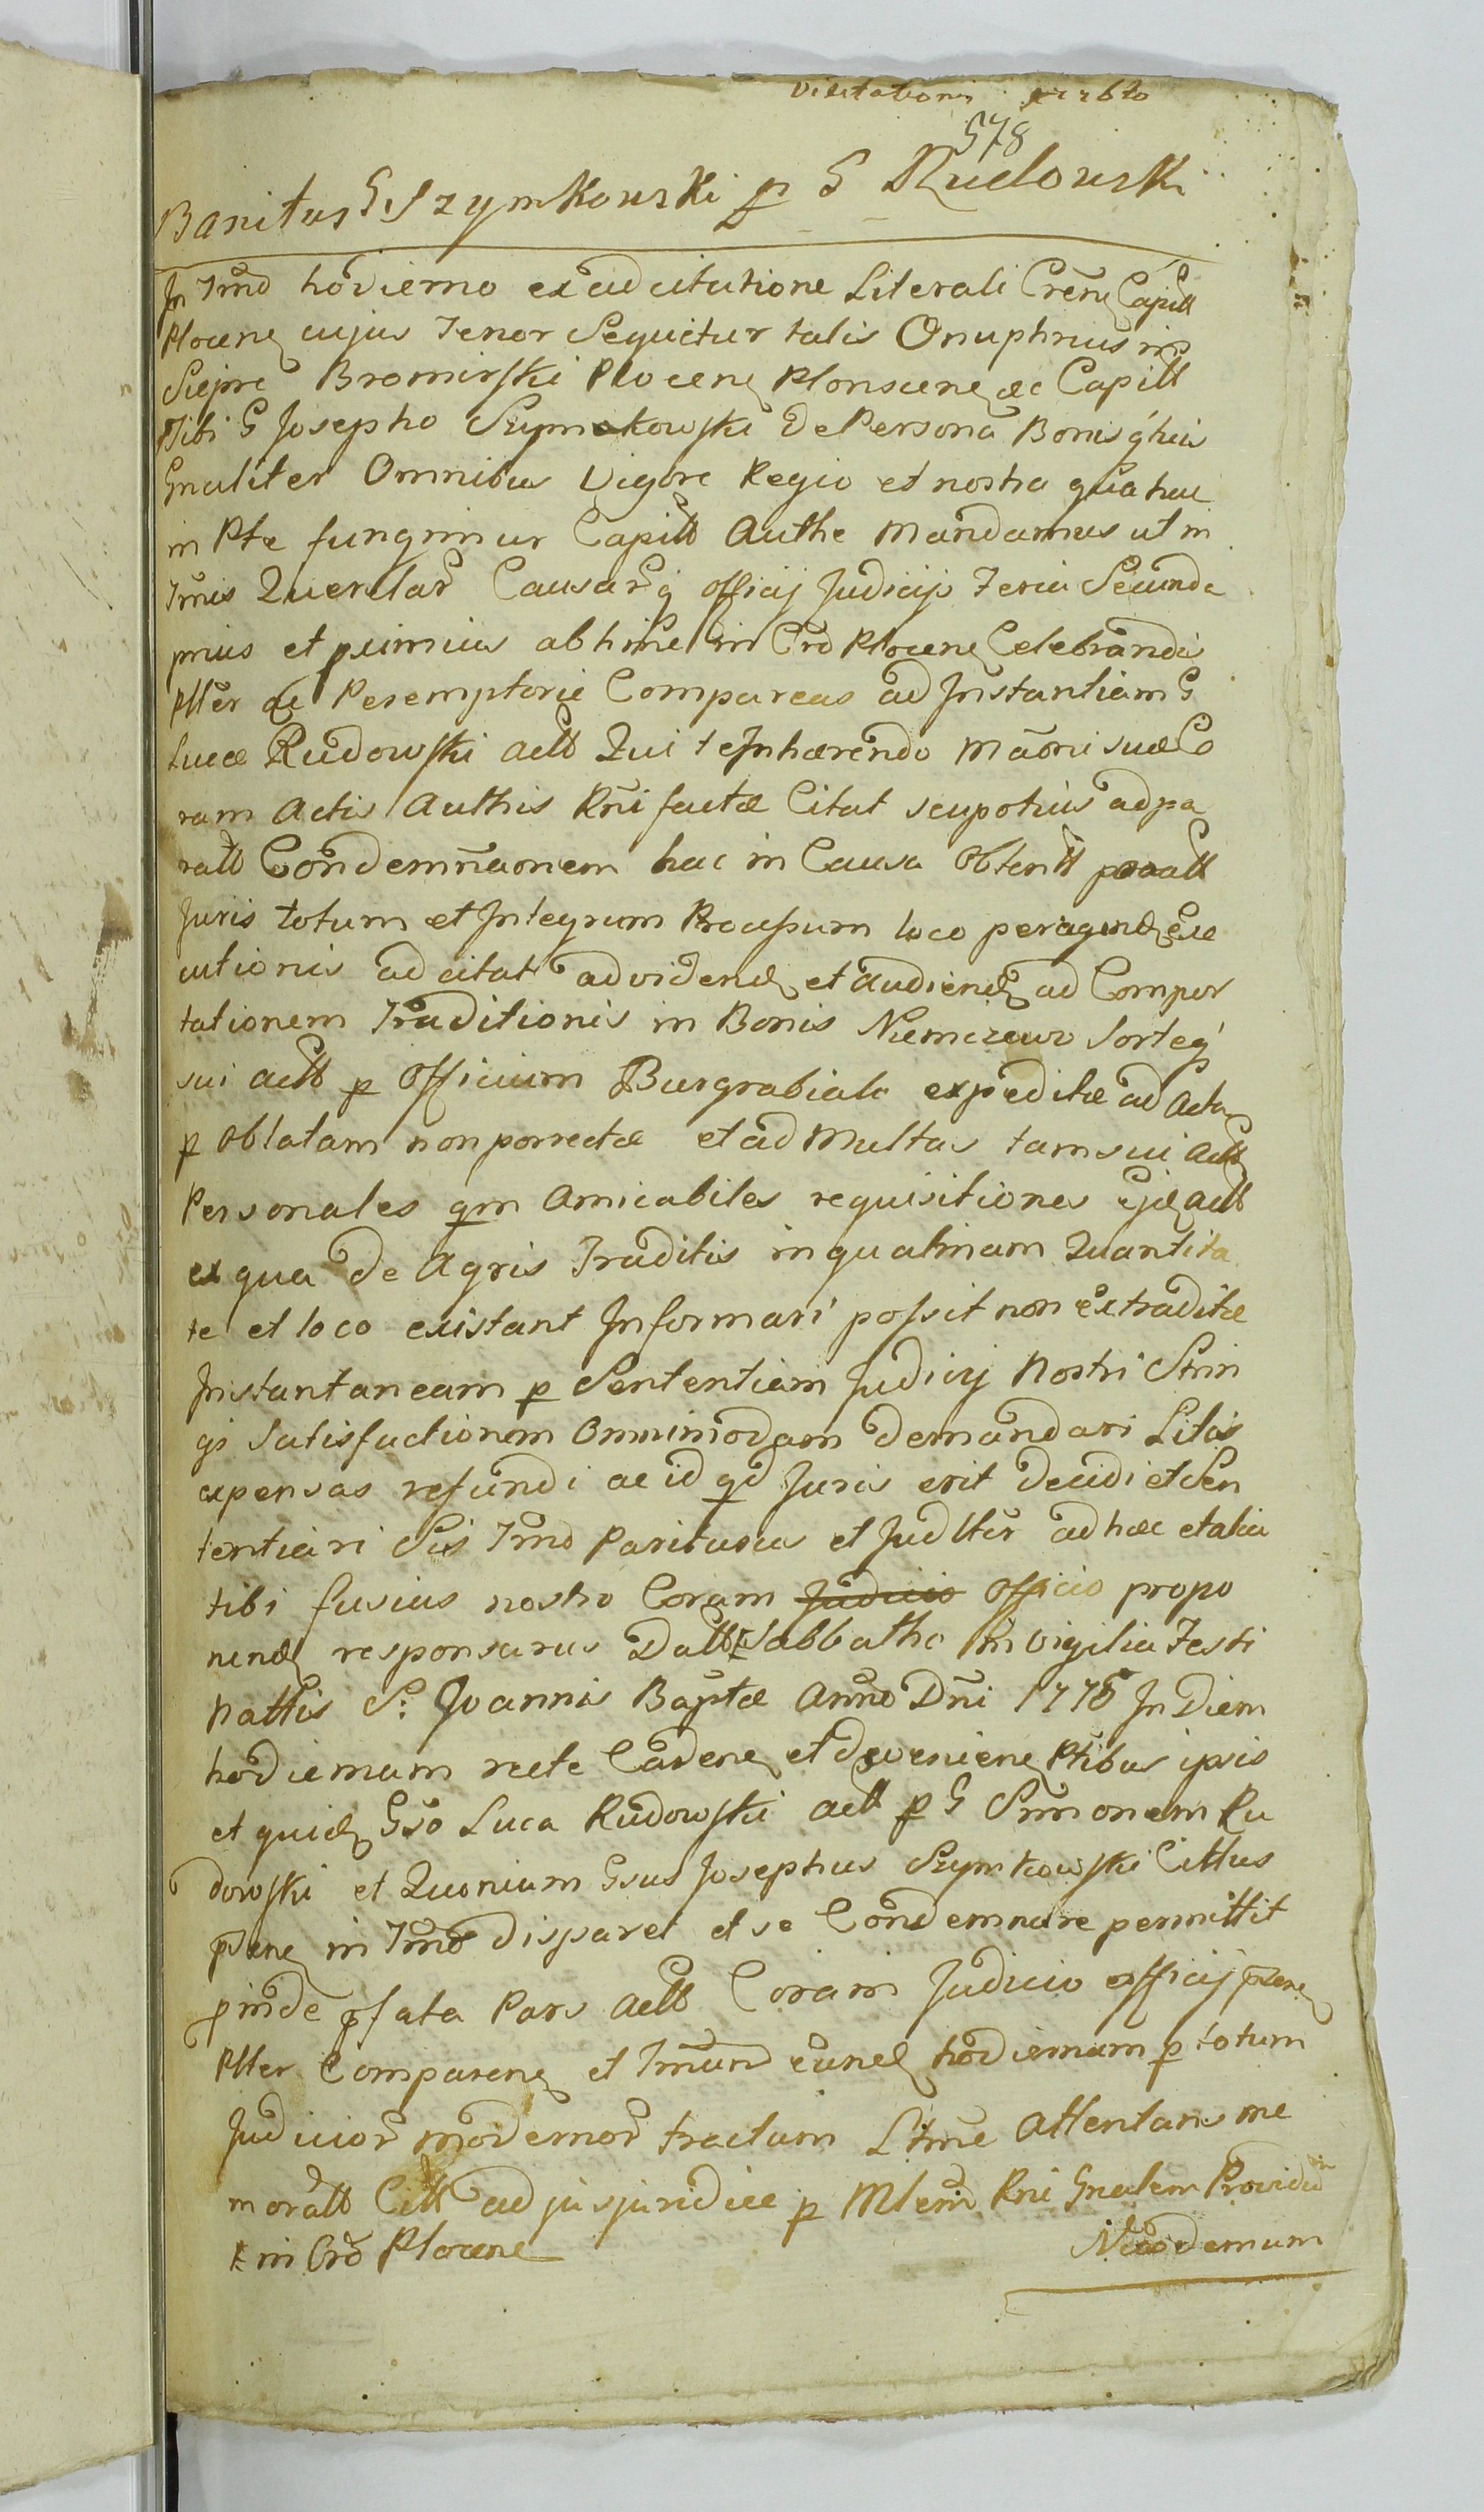 578
Banitus G. Szymkowski p G Rudowski
In Tmo hodierno ex adcitatione Literali Crēn Capitt
Plocen cujus Tenor Sequitur talis Onuphrius in
Siepre Bromirski Plocen Plonscen ac Capitt
Tibi G Josepho Szymakowski de Persona Bonisq́
Gnaliter Omnibus Vigore Regio et nostra qua hac
in Pte fungimur Capitt Authe Mandamus ut in
Tmis Querelar Causarq́ Officij Judicijs Feria Secunda
prius et primius abhinc in Crō Plocen Celebrandis
Plter ac Peremptorie Compareas ad Instantiam G
Lucæ Rudowski actt Qui te Inhærendo Mãoni suæ Co
ram Actis Authis Rñi factæ Citat seu potius ad pa
ratt Condemñaonem hac in Causa Obtentt
Juris totum et Integrum Processum loco peragend Exe
cutionis ad citat ad videnđ et audienđ ad Compor
tationem Traditionis in Bonis Niemczewo Sorteq́
sui actt p Officium Burgrabiale expeditæ ad Acta
p Oblatam non porrectæ et ad Multas tam sui actt
Personales qm Amicabiles requisitiones Ejđ actt
ex qua de Agris Traditis in quatinam Quantita
te et loco existant Informari possit non extraditæ
Instantaneam p Sententiam Judicij Nostri Strin
gi Satisfactionem Omnimodam demandari Litis
expensas refundi ac id qđ Juris erit decidi et Sen
tentiari Sis Tmo Pariturus et Judlter ad hæc et alia
tibi fusius nostro Coram Judicio Officio propo
nenđ responsurus Datt Sabbatho in vigilia Festi
Nattis S: Joannis Baptæ Anno Dñi 1776 In Diem
hodiernum recte Caden et devenien Ptibus ipsis
et quiđ Gso Luca Rudowski actt p G Simonem Ru
dowski et Quonium Gsus Josephus Szymkowski Cittus
psene in Tmo disparet et se Condemnare permittit
pinde pfata Pars actt Coram Judicio officij psen
Plter Comparen et Tmum eunđ hodiernum p totum
Judicior modernor tractum Ltme Attentans me
moratt Citt ad jusjuridice p Mlem Rni Gnalem Providū
in Crō Plocene Nicodemum